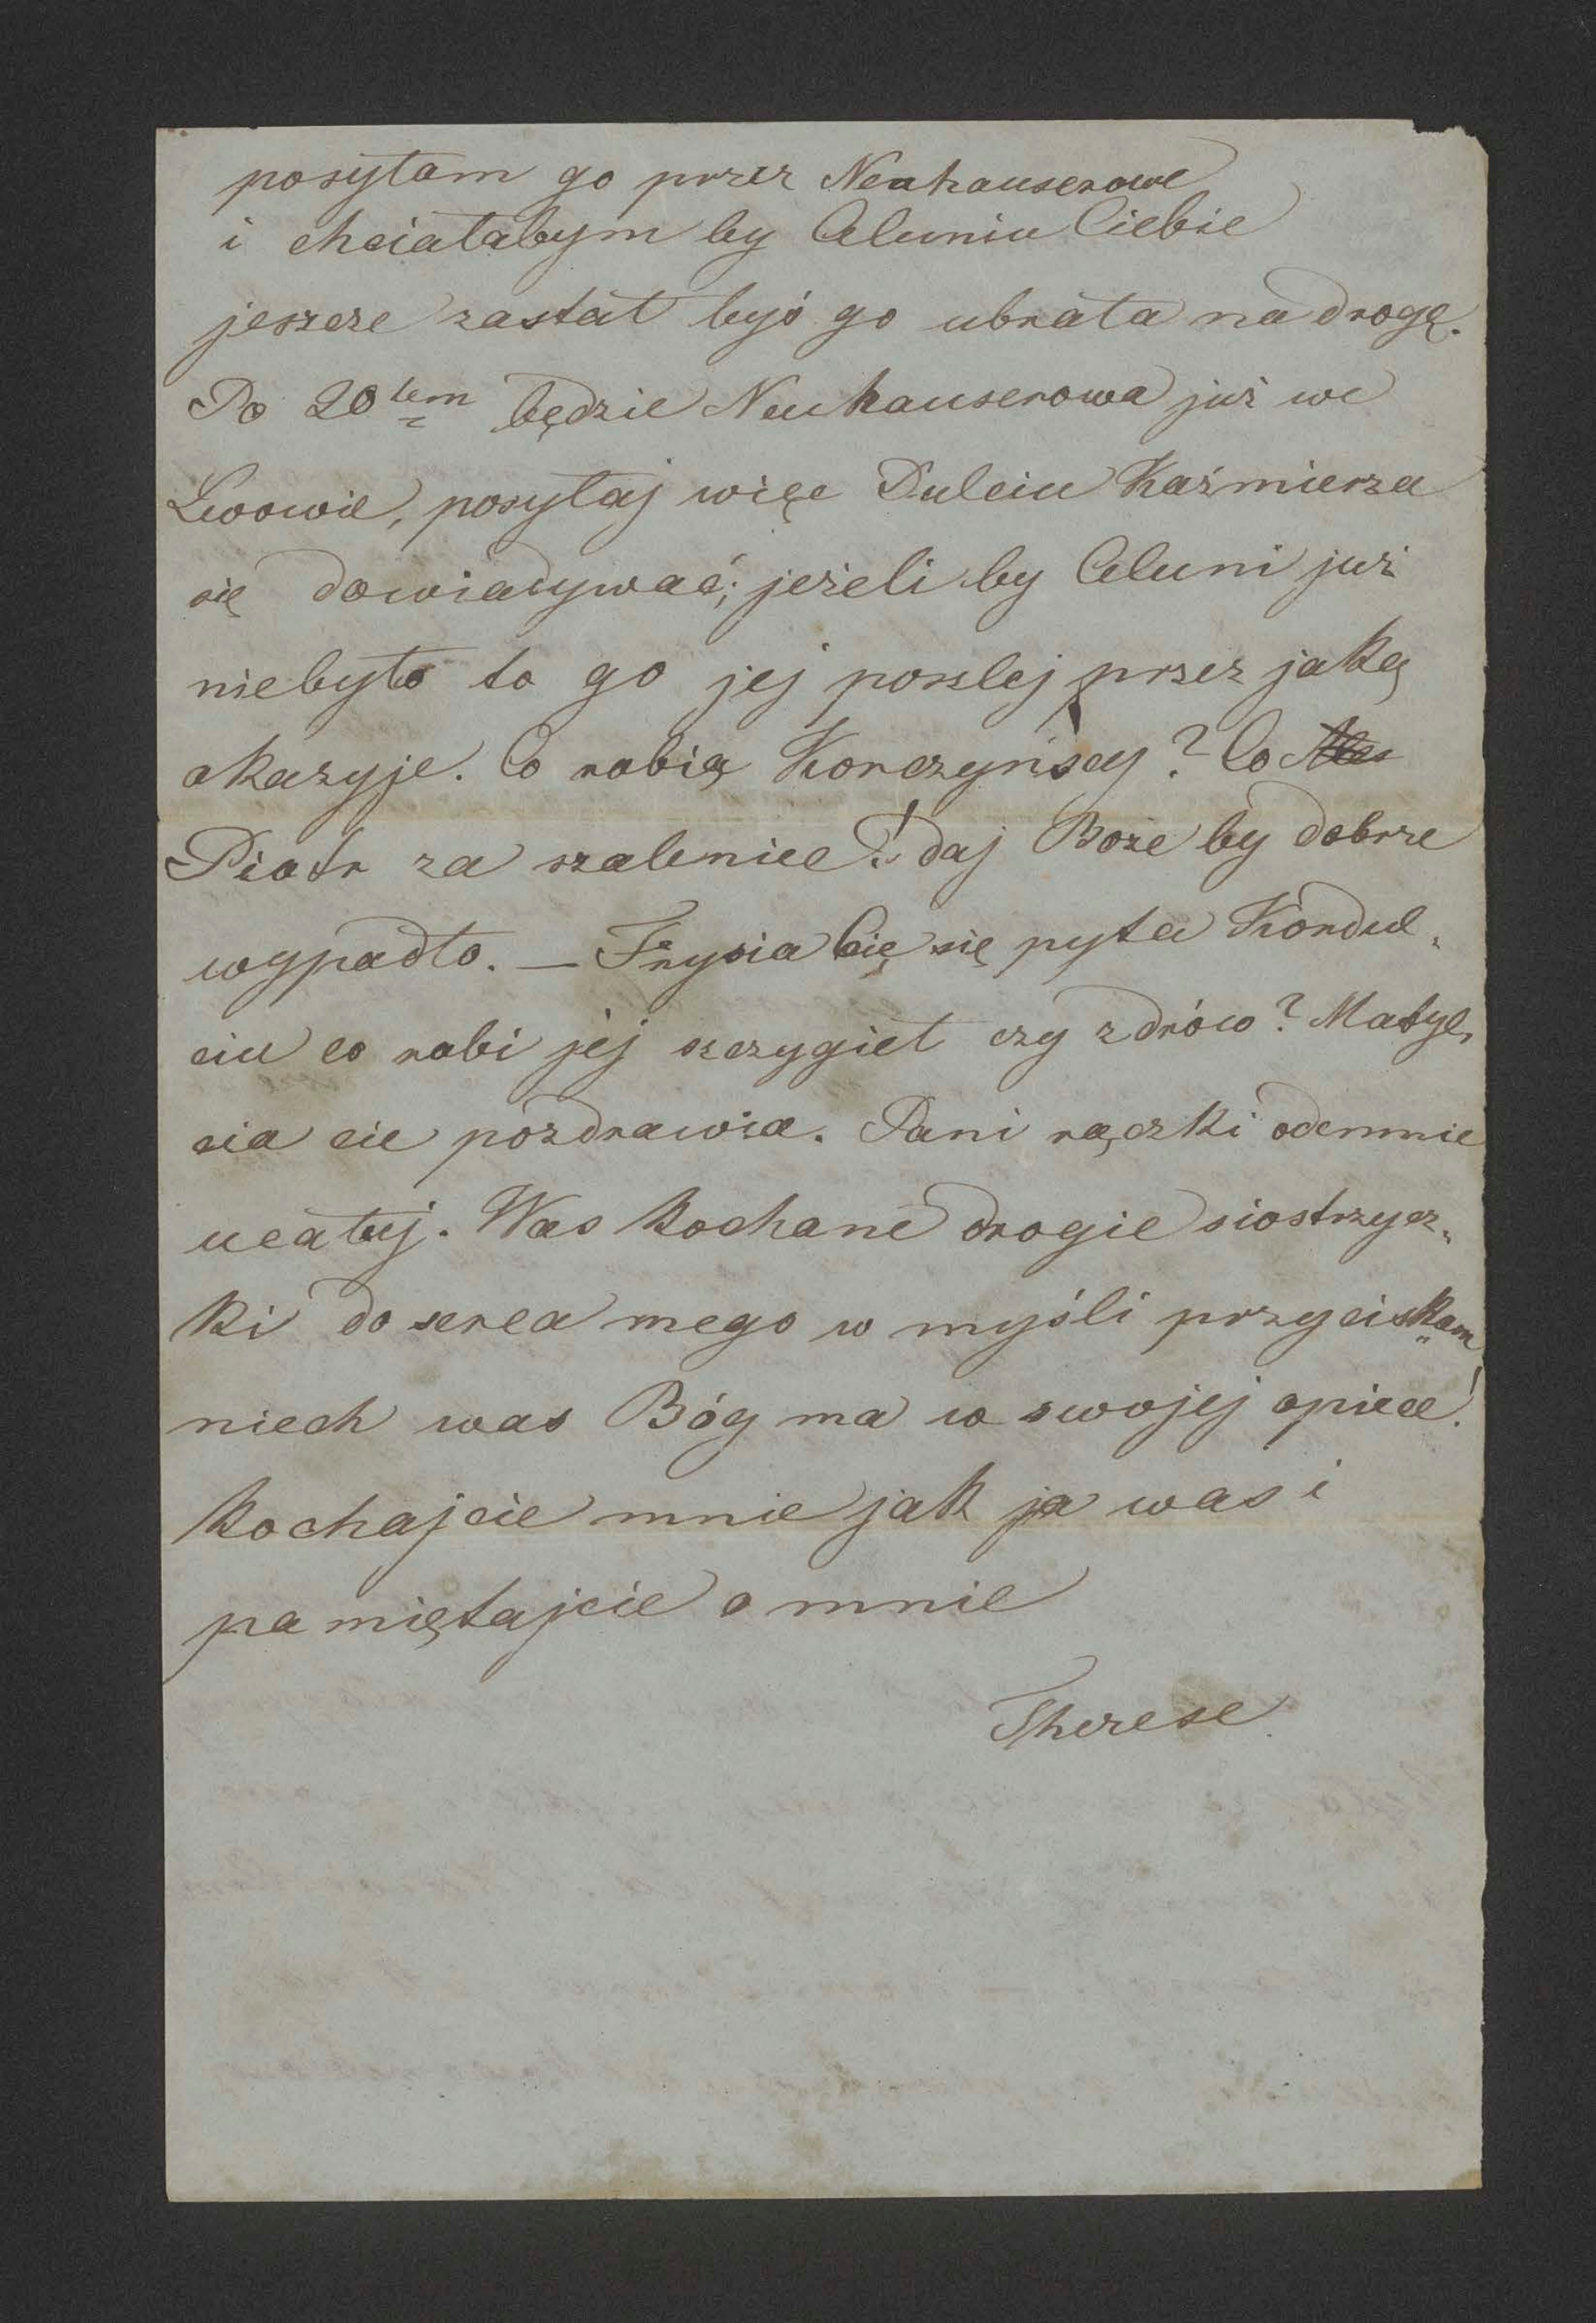 posyłam go przez Neuhauserowe
i chciałabym by Celuniu Ciebie
jeszcze zastał byś go ubrała na drogę.
Po 20tem będzie Neuhauserowa już we
Lwowie, posyłaj więc Dulciu Kaźmierza
się dowiadywać; jeżeli by Celuni już
niebyło to go jej poszlej przez jaką
okazyje. Co robią Korczyńscy? Co
Piotr za szalenice! daj Boże by dobrze
wypadło. — Frysia Cię się pyta Kordul„
ciu co robi jej szczygieł czy zdrów? Matyl„
cia cie pozdrawia. Pani rączki odemnie
ucałuj. Was kochane drogie siostrzycz„
ki do serca mego w myśli przyciskam
niech was Bóg ma w swojej opiece!
Kochajcie mnie jak ja was i
pamiętajcie o mnie
Therese